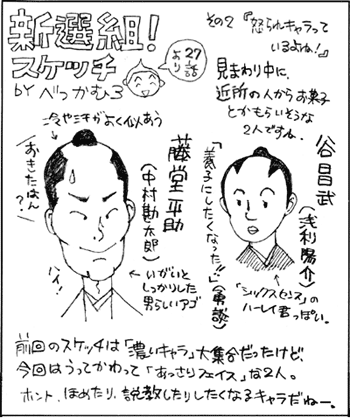 新選組!
スケッチ
27話より
byべっかむ3
その2『怒られキャラっているよね!』
見まわり中に、
近所の人からお菓子
とかもらいそうな
2人ですね。
冷やニキがよく似あう
おきたはん?
藤堂平助
(中村勘太郎)
ハイ!
←いがいと
しっかりした
男らしいアゴ
谷昌武
(浅利陽介)
「養子にしたくなった!!」(勇談)
「シックスセンス」の
ハーレイ君っぽい。
前回のスケッチは「濃いキャラ」大集合だったけど、
今回はうってかわって「あっさりフェイス」な2人。
ホント、ほめたり、説教したりしたくなるキャラだねー。